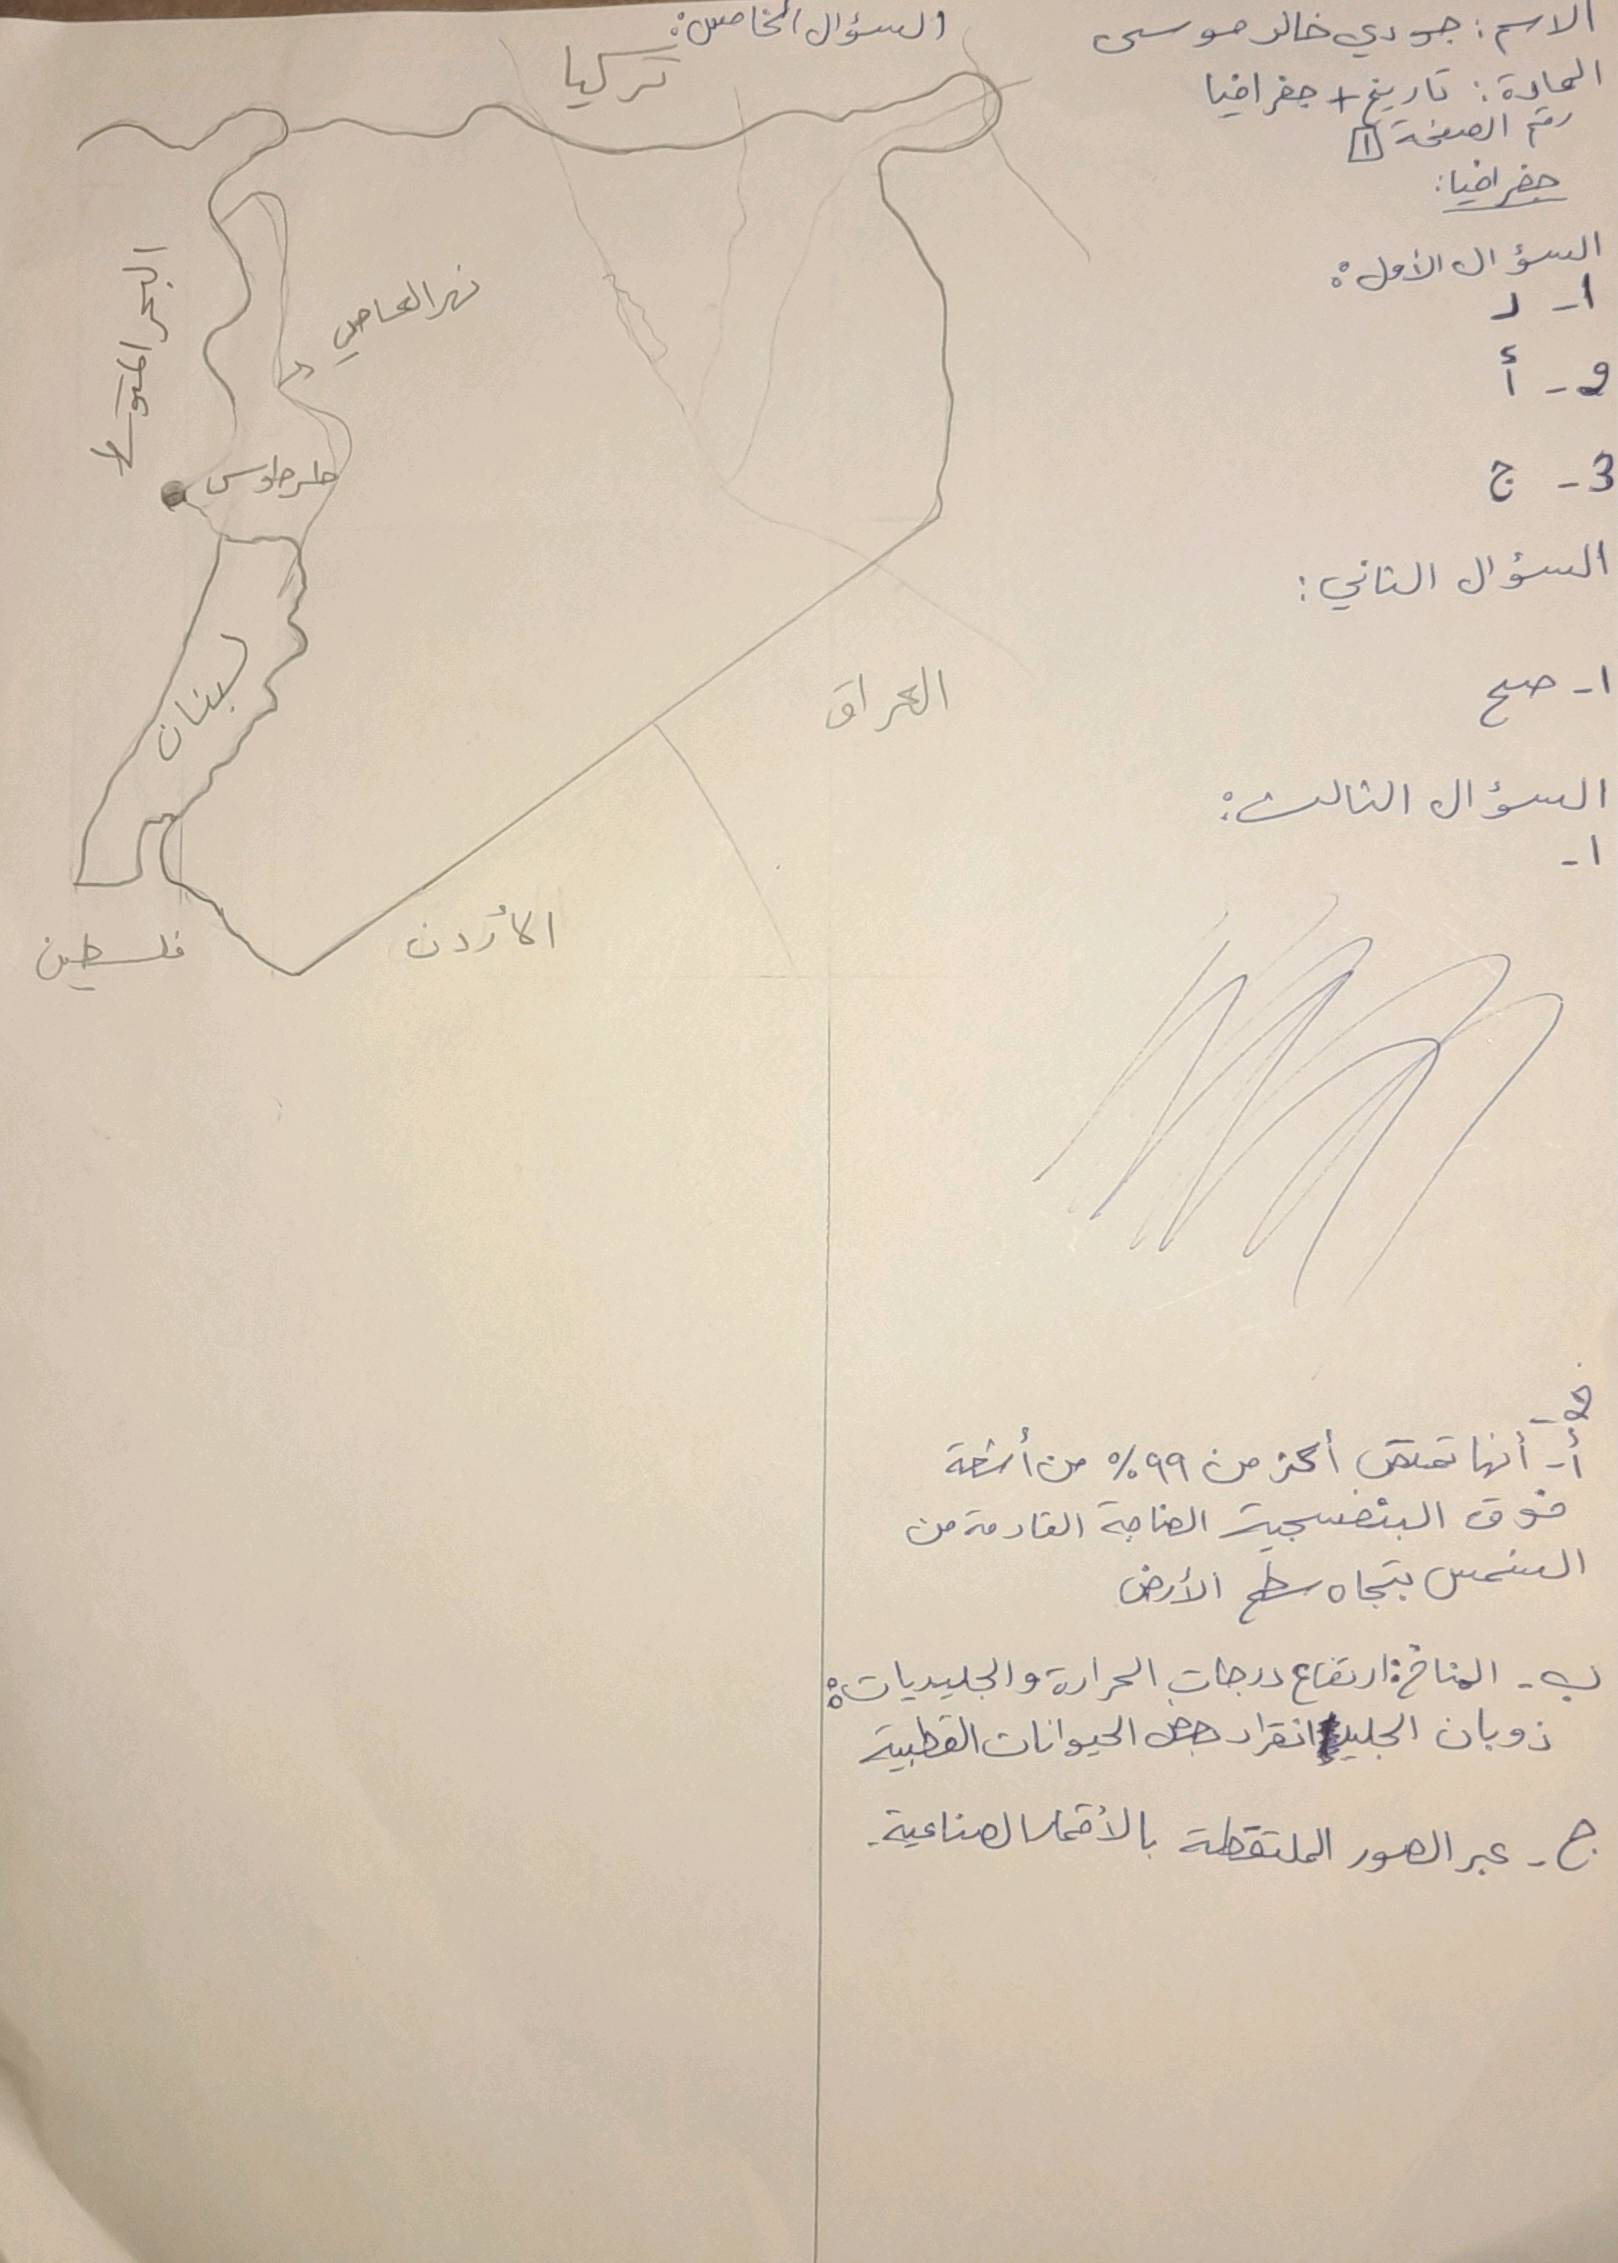 الاسم: جودي خالد موسى
المادة: تاريخ + جغرافيا
رقم الصفحة 1
جغرافيا:
السؤال الأول:
1- د
2- أ
3- ج
السؤال الثاني:
1- صح
السؤال الثالث:
1-
2-
أ- أنها تمتص أكثر من ٩٩% من أشعة
فوق البنفسجية الضاجة القادمة من
الشمس بتجاه سطح الأرض
ب- المناخ: ارتفاع درجات الحرارة والجليديات:
ذوبان الجليد انقراد بعض الحيوانات القطبية
ج- عبر الصور الملتقطة بالأقمار الصناعية.
السؤال الخامس:
تركيا
البحر المتوسط
نهر العاصي
طرطوس
لبنان
العراق
الأردن
فلسطين